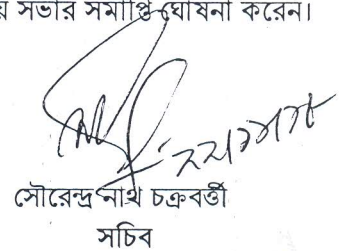 য় সভার সমাপ্তি ঘোষনা করেন।
সৌরেন্দ্র নাথ চক্রবর্ত্তী
সচিব